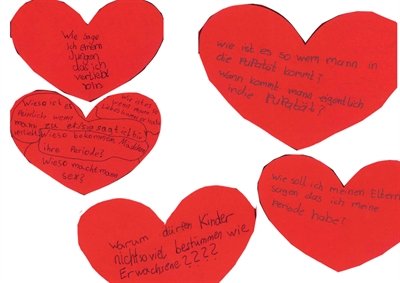 Wie sage
ich einem
Jungen
das ich
verliebt
bin?
wie ist es so wenn mann in
die Pupatät kommt?
Wann kommt mann eigentlich
in die Pupatät?
Wieso ist es
Peinlich wenn
mann
verliebt
wieso bekommen Mädchen
ihre Periode?
Wieso macht mann
sex?
Wie soll ich meinen Eltern
sagen das ich meine
Periode habe?
warum dürfen Kinder
nicht so viel bestimmen wie
Erwachsene????